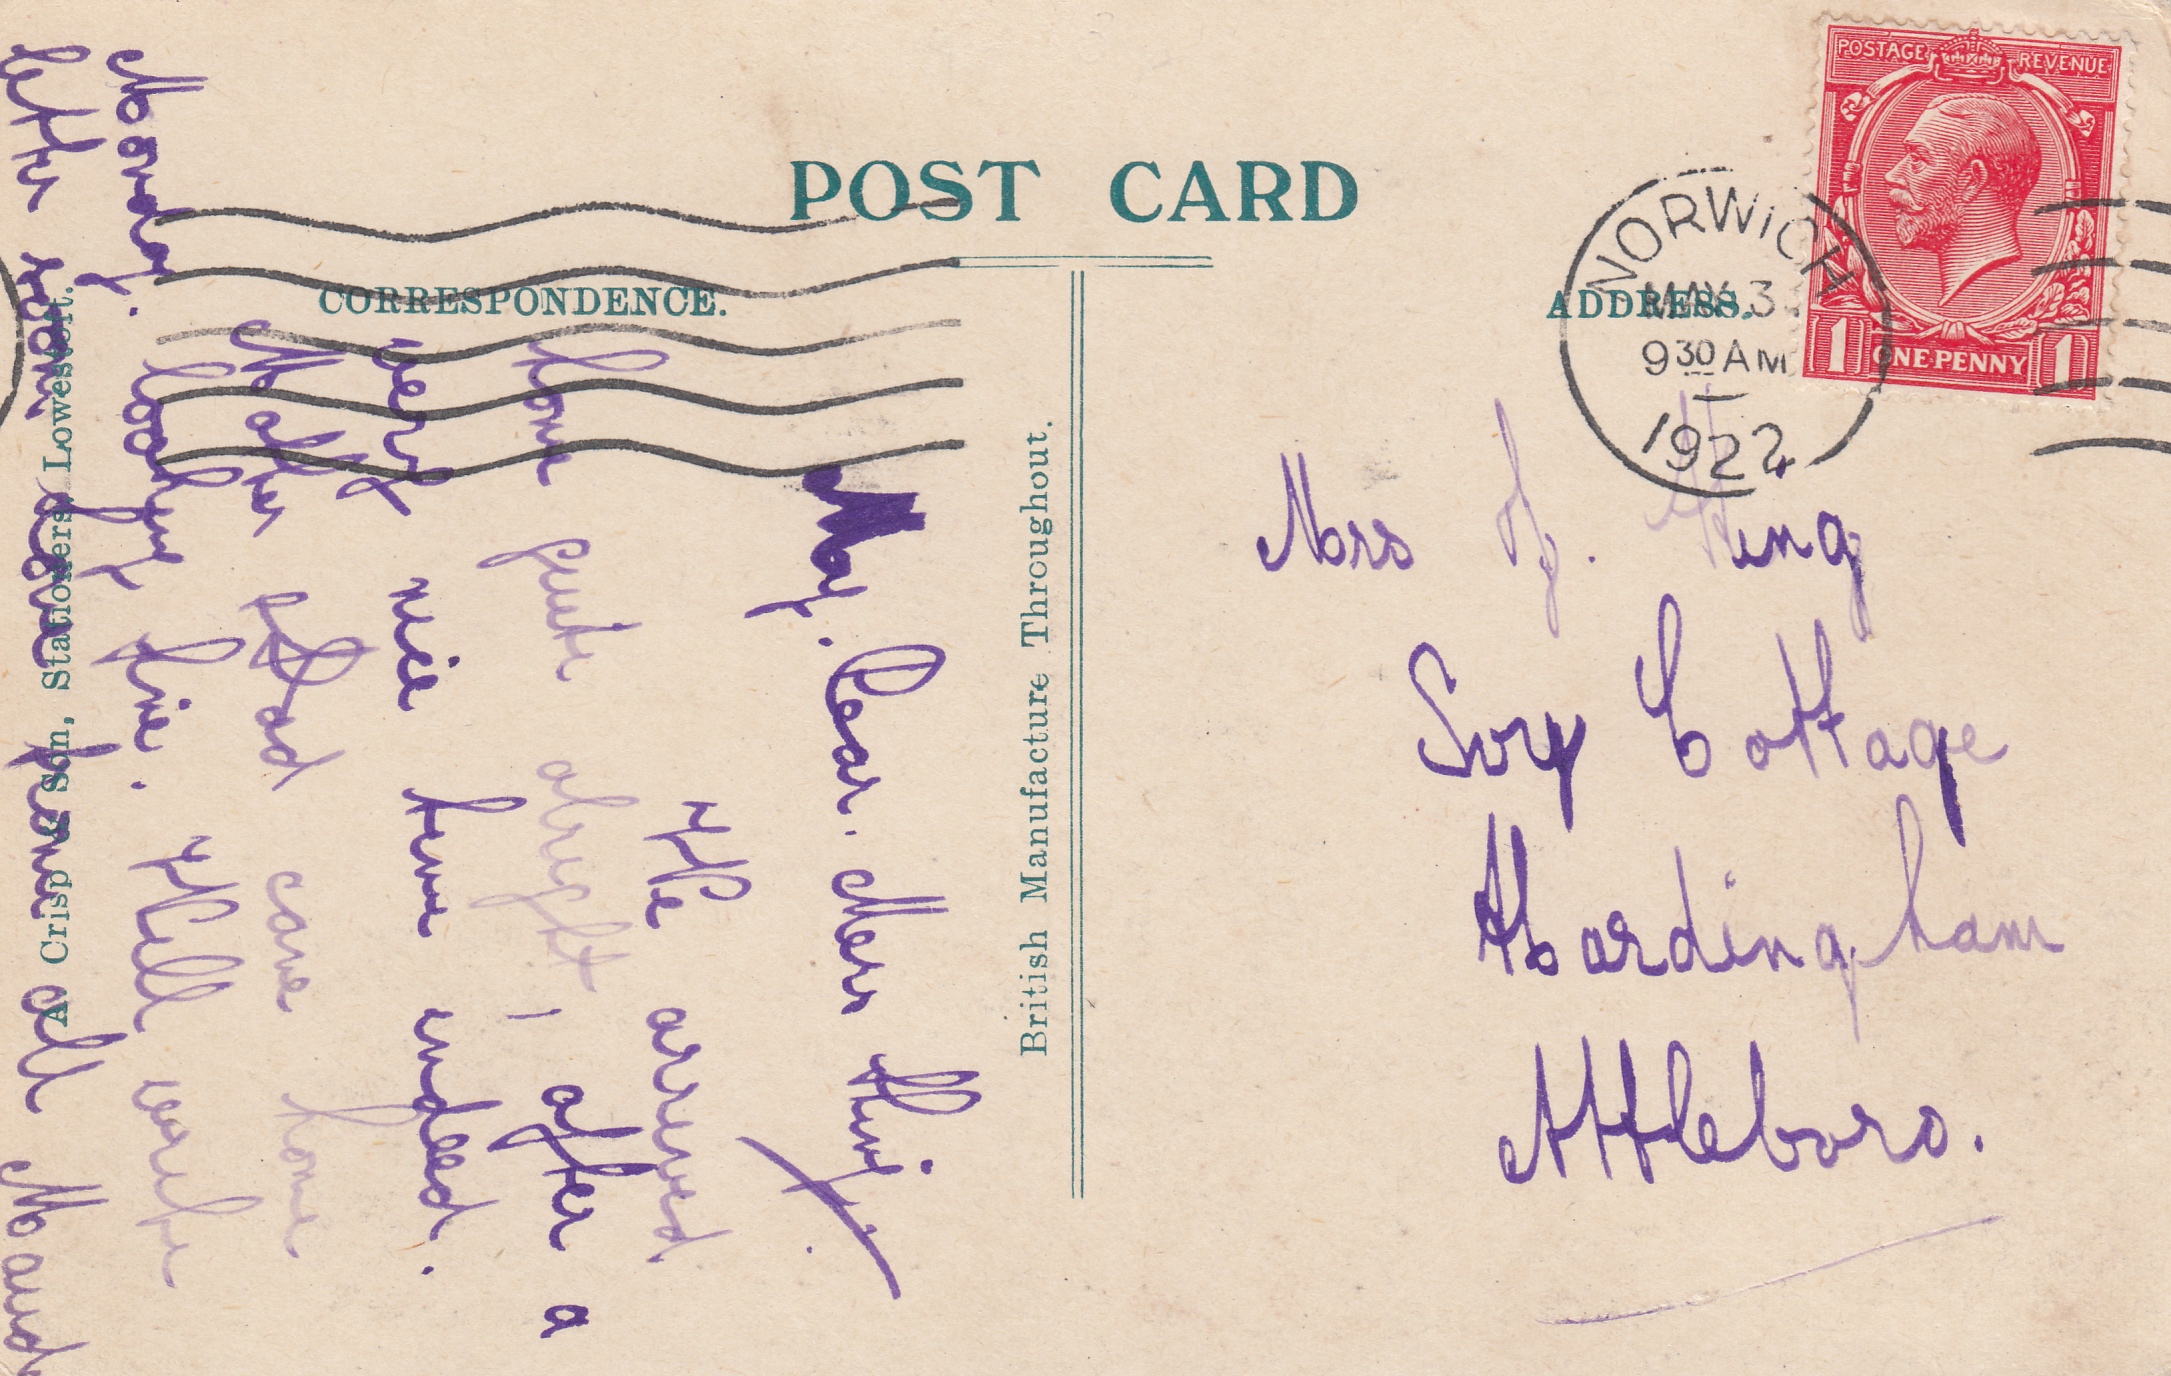 POST CARD
CORRESPONDENCE.
ADDRESS.
POSTAGE REVENUE
1 ONE PENNY 1
NORWICH
MAY 3
9 30 AM
1922
May. Dear. Mrs King.
We arrived
home quite alright, after a
very nice time indeed.
Mother & Dad came home
Monday. looking fine. Will write
letter soon love from all Maud
A. Crisp & Son, Stationers, Lowestoft.
British Manufacture Throughout.
Mrs J. King
Ivy Cottage
Hardingham
Attleboro.